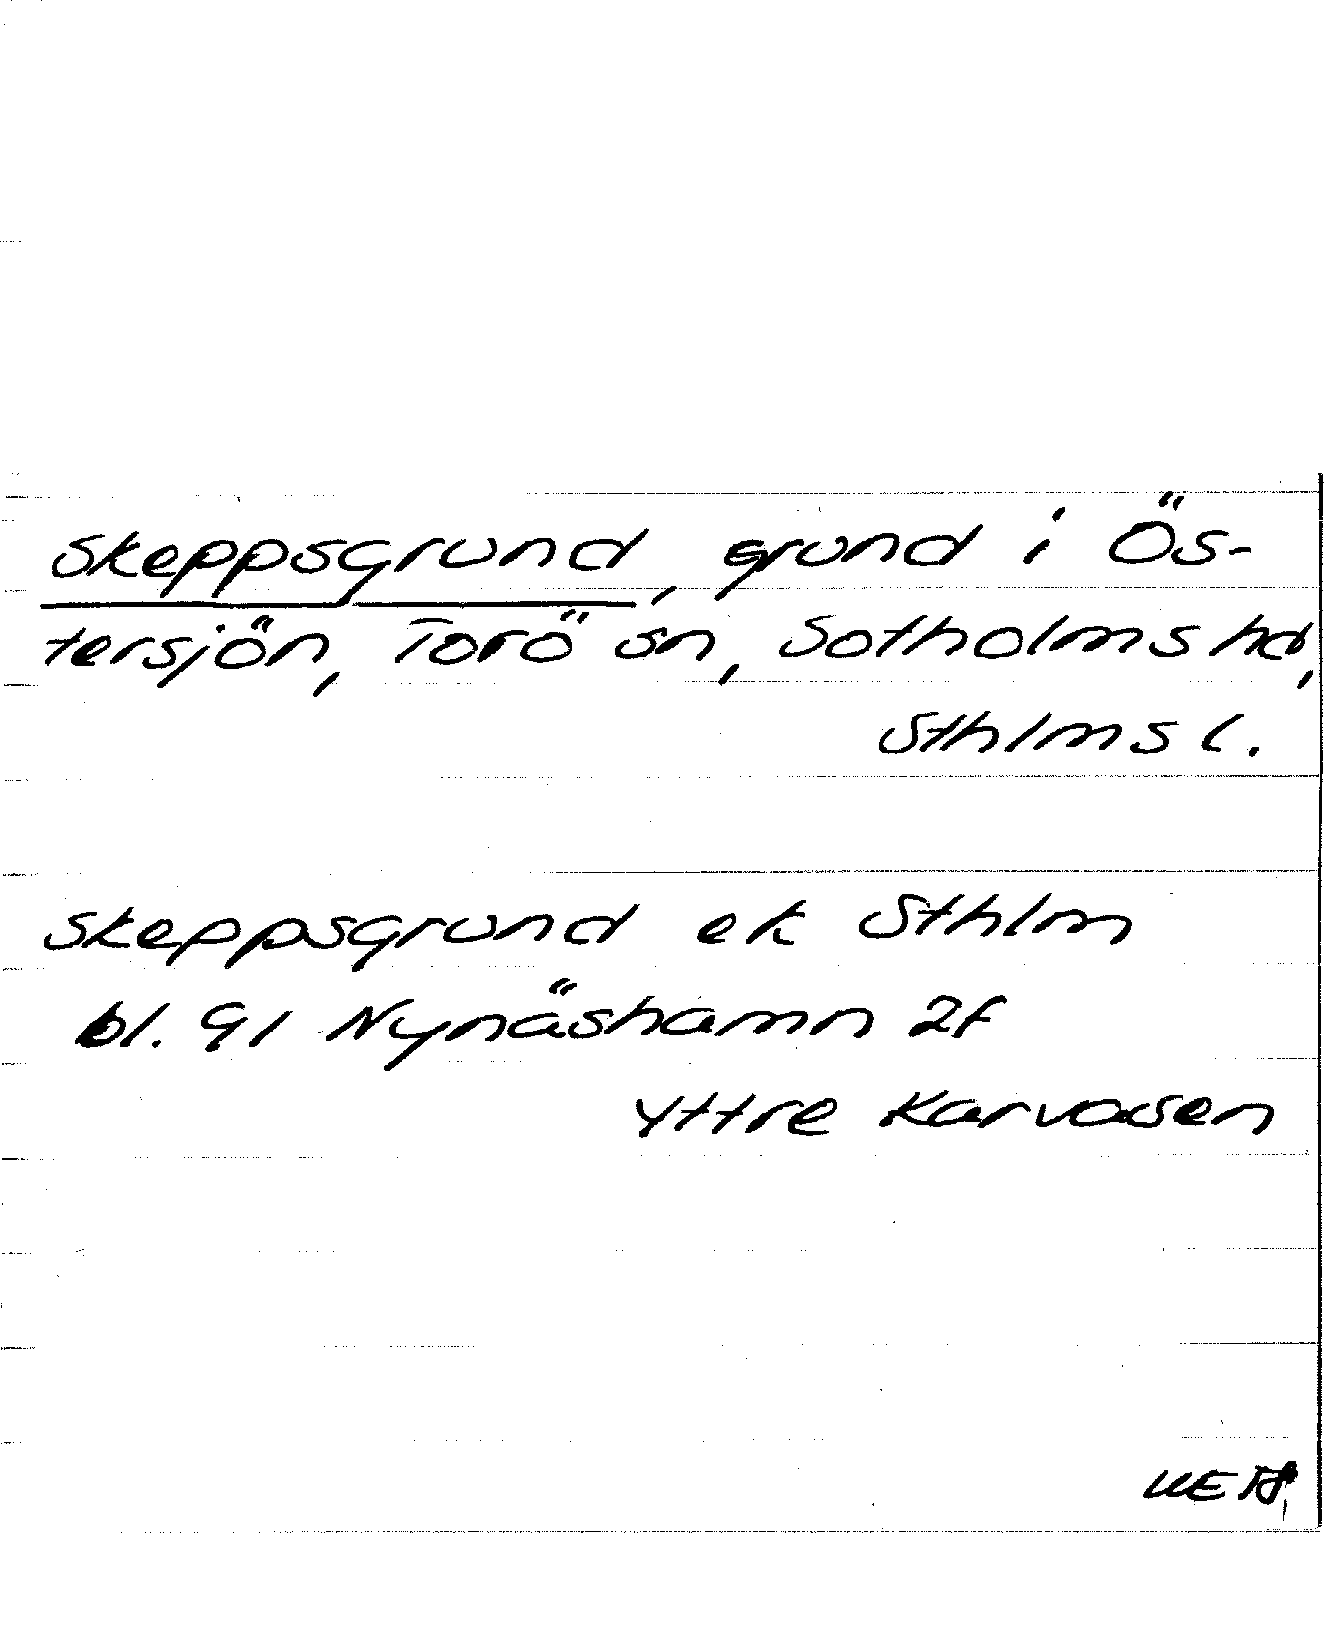 Skeppsgrund, grund i Ös-
tersjön, Torö sn, Sotholms hd,
Sthlms l.
Skeppsgrund ek Sthlm
bl. 91 Nynäshamn 2f
Yttre Karvasen